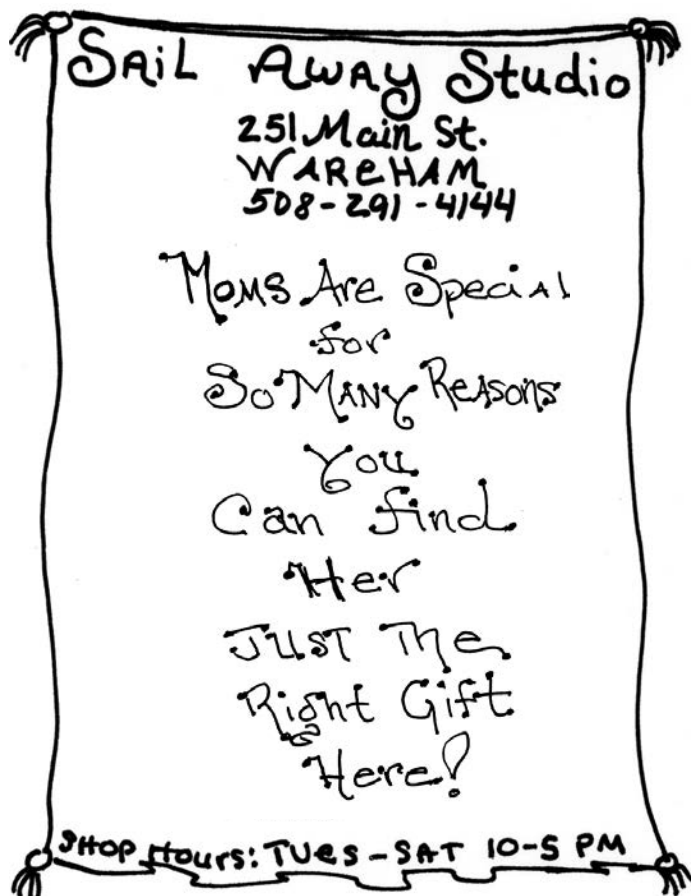 SAiL AWAy Studio
251 Main St.
WAReHAM
508-291-4144
Moms Are Special
for
So MANY ReAsons
You
Can find
Her
JUST The
Right Gift
Here!
SHOP Hours: TUes - SAT 10-5 PM